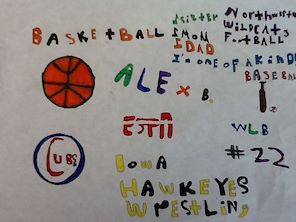 BASKEtBALL
1 SISTER
1 MOM
1 DAD
I'm one of A KIND!!
Northwestern
WILDCATS
FootBALL
BASEBALL
ALEx B.
ESPN
WLB
#22
CUBS
IowA
HAWKEYES
WRESTLING